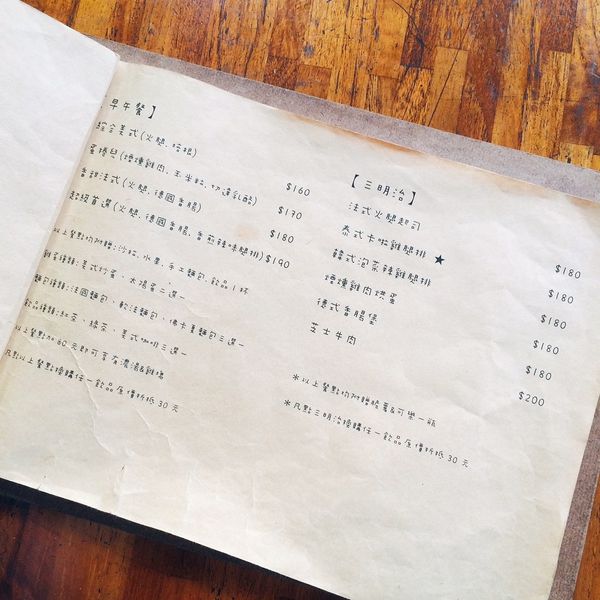 早午餐】
綜合美式(火腿、培根)
蛋捲皇(煙燻雞肉、玉米粒、切達乳酪) $160
香甜法式(火腿、德國香腸) $170
超級首選(火腿、德國香腸、香煎辣味腿排) $180
$190
以上餐點均附贈:沙拉、水果、手工麵包、飲品1杯
雞蛋種類:美式炒蛋、太陽蛋二選一
麵包種類:法國麵包、軟法麵包、佛卡夏麵包三選一
飲品種類:紅茶、綠茶、美式咖啡三選一
以上餐點加60元即可享有濃湯&雞塊
凡點以上餐點換購任一飲品原價折抵30元
【三明治】
法式火腿起司 $180
泰式卡啦雞腿排 $180
韓式泡菜辣雞腿排★ $180
煙燻雞肉烘蛋 $180
德式香腸堡 $180
芝士牛肉 $200
*以上餐點均附贈脆薯&可樂一瓶
*凡點三明治換購任一飲品原價折抵30元